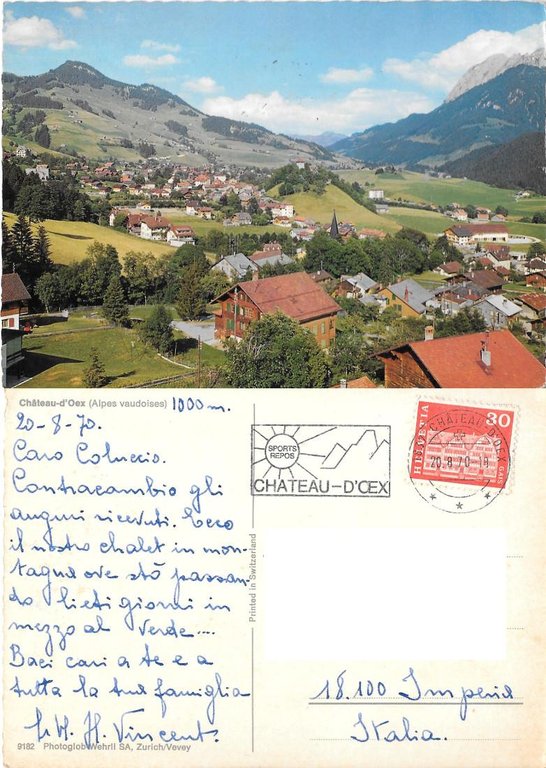 Château-d'Oex (Alpes vaudoises) 1000 m.
20-8-70.
Caro Coluccio.
Contraccambio gli
auguri ricevuti. Ecco
il nostro chalet in mon-
tagna ove stò passan-
do lieti giorni in
mezzo al verde...
Baci cari a te e a
tutta la tua famiglia
H. Vincent.
9182 Photoglob-Wehrli SA, Zurich/Vevey
Printed in Switzerland
SPORTS
REPOS
CHATEAU-D'ŒX
CHATEAU-D'OEX
20.8.70.-11
HELVETIA
30
GAIS
18.100 Imperia
Italia.